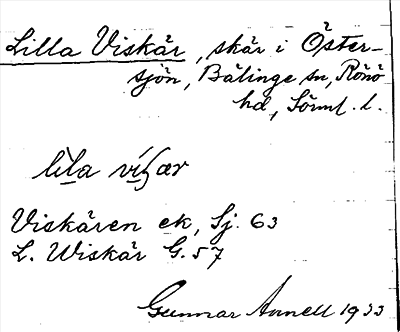 Lilla Viskär, skär i Öster-
sjön, Bälinge sn, Rönö
hd, Sörml. l.
lìla víʂær
Viskären ek, Sj. 63
L. Wiskär G. 57
Gunnar Annell 1933